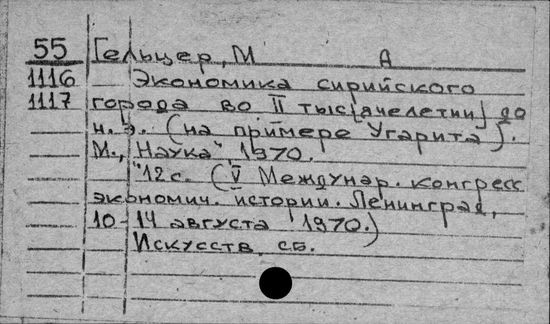 55 Гельцер, М А
1116 Экономика сирийского
1117 города во II тыс[ячелетии] до
н. э. (на примере Угарита).
М., "Наука" 1970.
12 с. (V Междунар. конгресс
экономич. истории. Ленинград,
10-14 августа 1970.)
Искусств. сб.